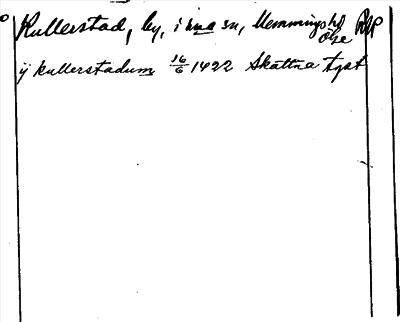 Kullerstad, by, i sma sn, Memmings hd
Ög
ij kullerstadum 16/6 1422 Skattna